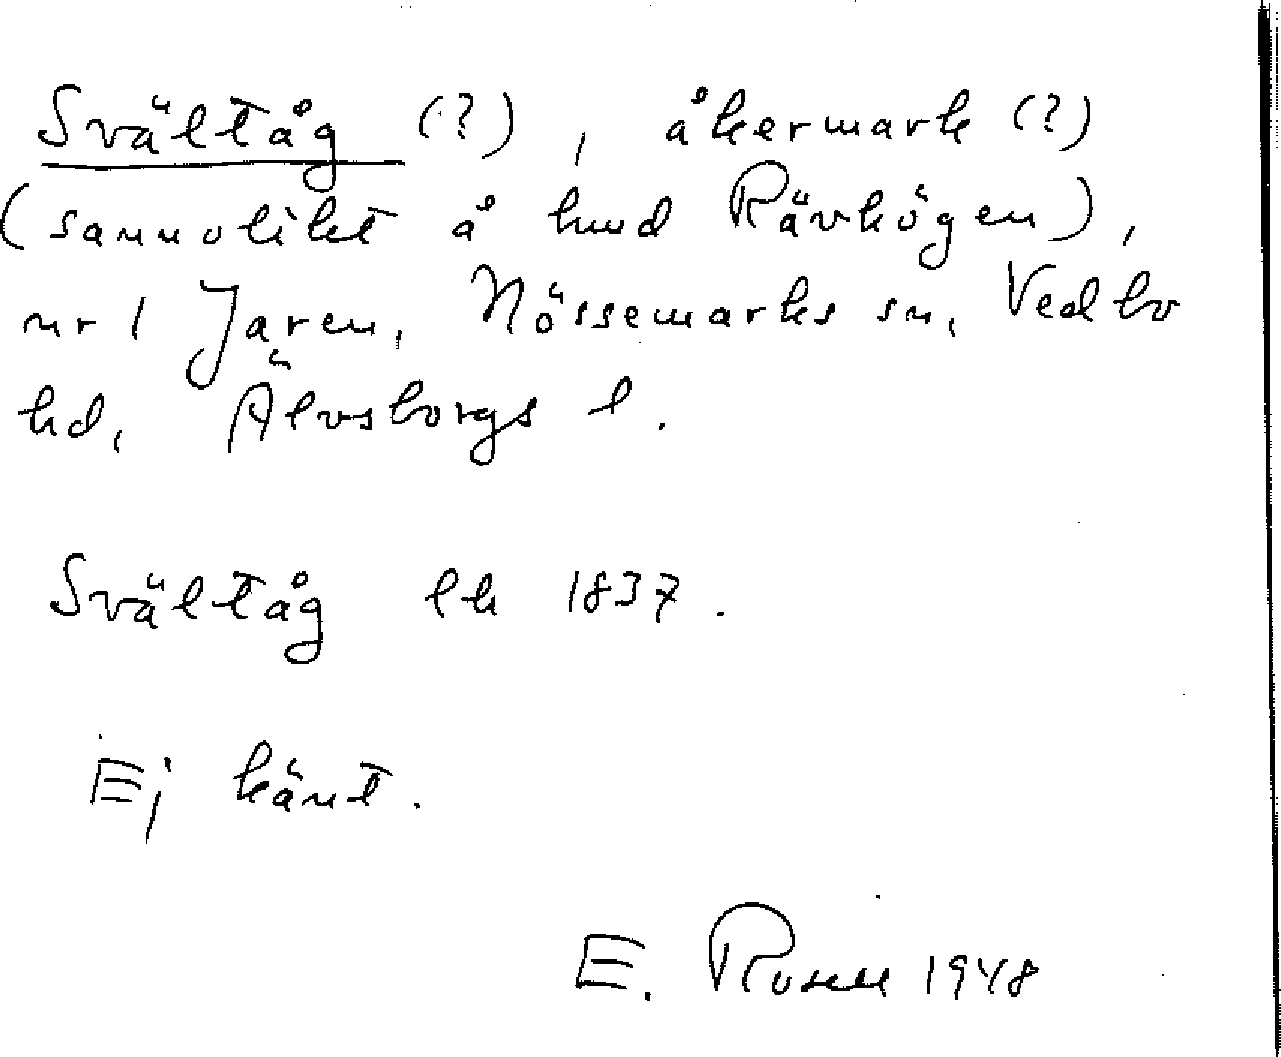 Svältåg (?), åkermark (?)
(sannolikt å hmd Rävhögen),
nr 1 Jaren, Nössemarks sn, Vedbo
hd, Älvsborgs l.
Svältåg lk 1837.
Ej känt.
E. Rosell 1948